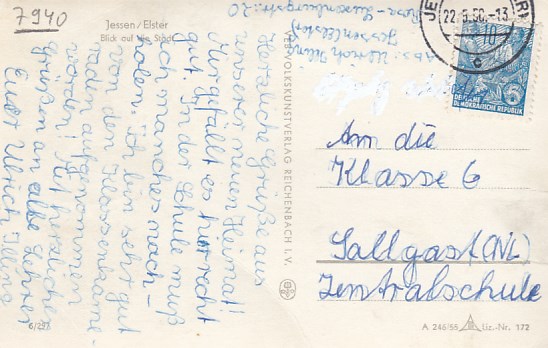 7940
Jessen/Elster
Blick auf die Stadt
Herzliche Grüße aus
unserer neuen Heimat!
Mir gefällt es hier recht
gut. In der Schule muß
ich manches nach-
holen. Ich bin sehr gut
von den Klassenkame-
raden aufgenommen
worden. Mit herzlichen
Grüßen an alle Lehrer
Euer Ulrich
6/297
VEB VOLKSKUNSTVERLAG REICHENBACH I. V.
Abs. Ulrich
Jessen/Elster
Rosa-Luxemburgstr. 20
JE
22.9.56.-13
10
c
DEUTSCHE
DEMOKRATISCHE REPUBLIK
Am die
Klasse 6
Sallgast (NL)
Zentralschule
A 246/56
Liz.-Nr. 172